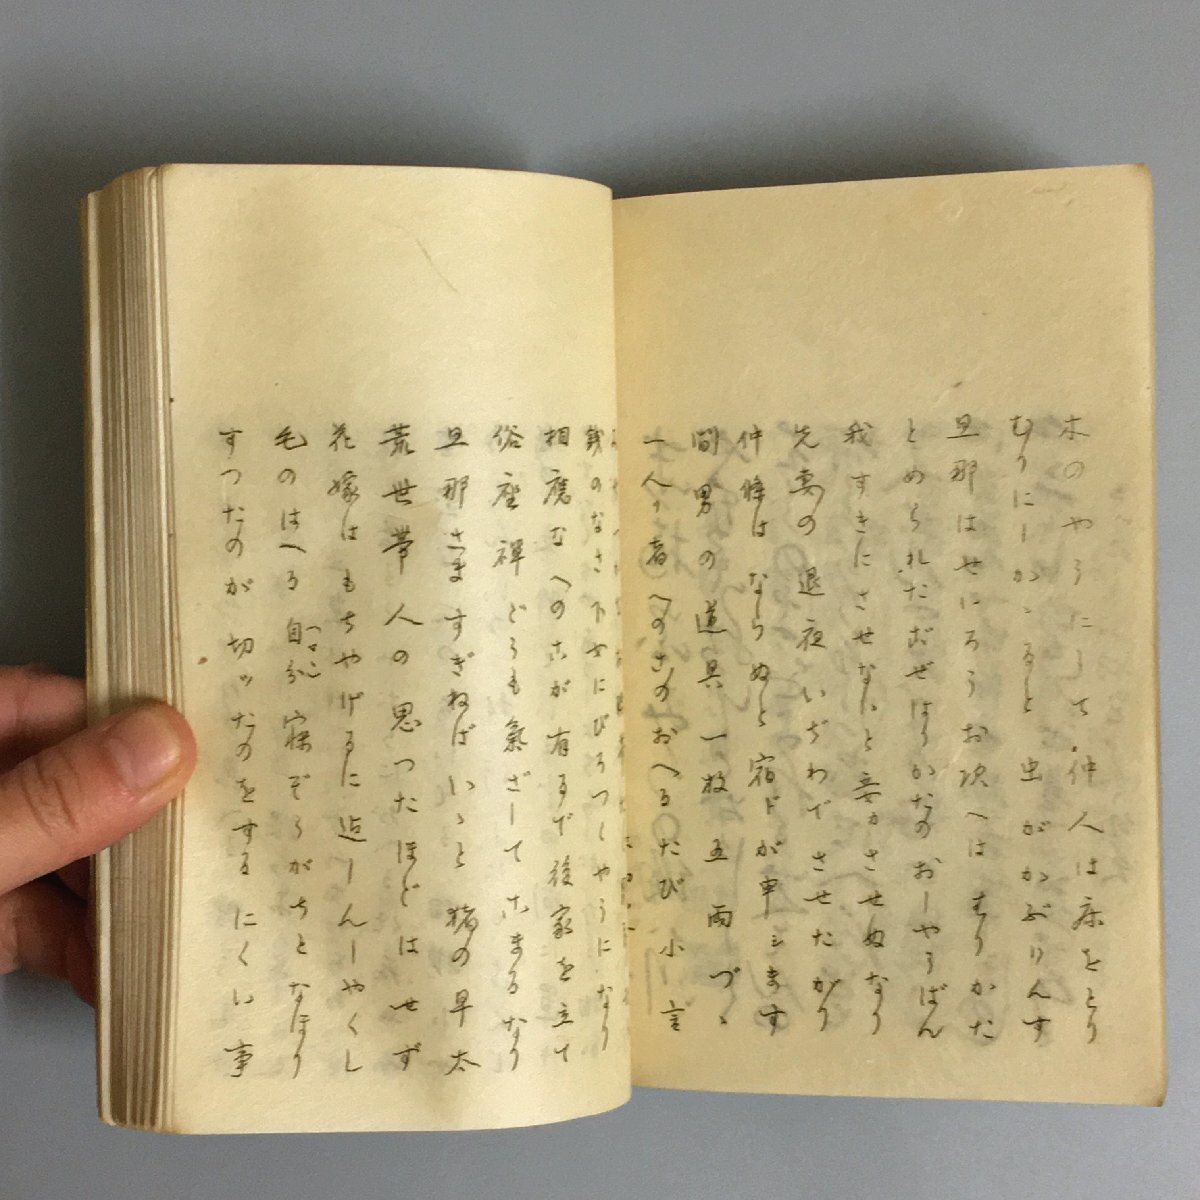 木のやうにして仲人は床をとり
むりにしかゝると虫がかぶりんす
旦那はせいろうお次へはすりかた
とめられたおぜはうかなのおしやうばん
我すきにさせないと妾ハさせぬなり
先妻の退夜いぢわでさせたがり
仲條はならぬと宿ドが申シます
間男の道具一枚五両づゝ
一人者へのこのおへるたび小言
銭のなさ下女にびろつくやうになり
相應なへのこが有るで後家を立て
俗座禅どうも氣ざしてこまるなり
旦那さますぎねばいゝと猪の早太
荒世帯人の思つたほどはせず
花嫁はもちやげるに迄しんしやくし
毛のはへる自分寐ぞうがちとなほり
すつたのが切ッたのをするにくい事